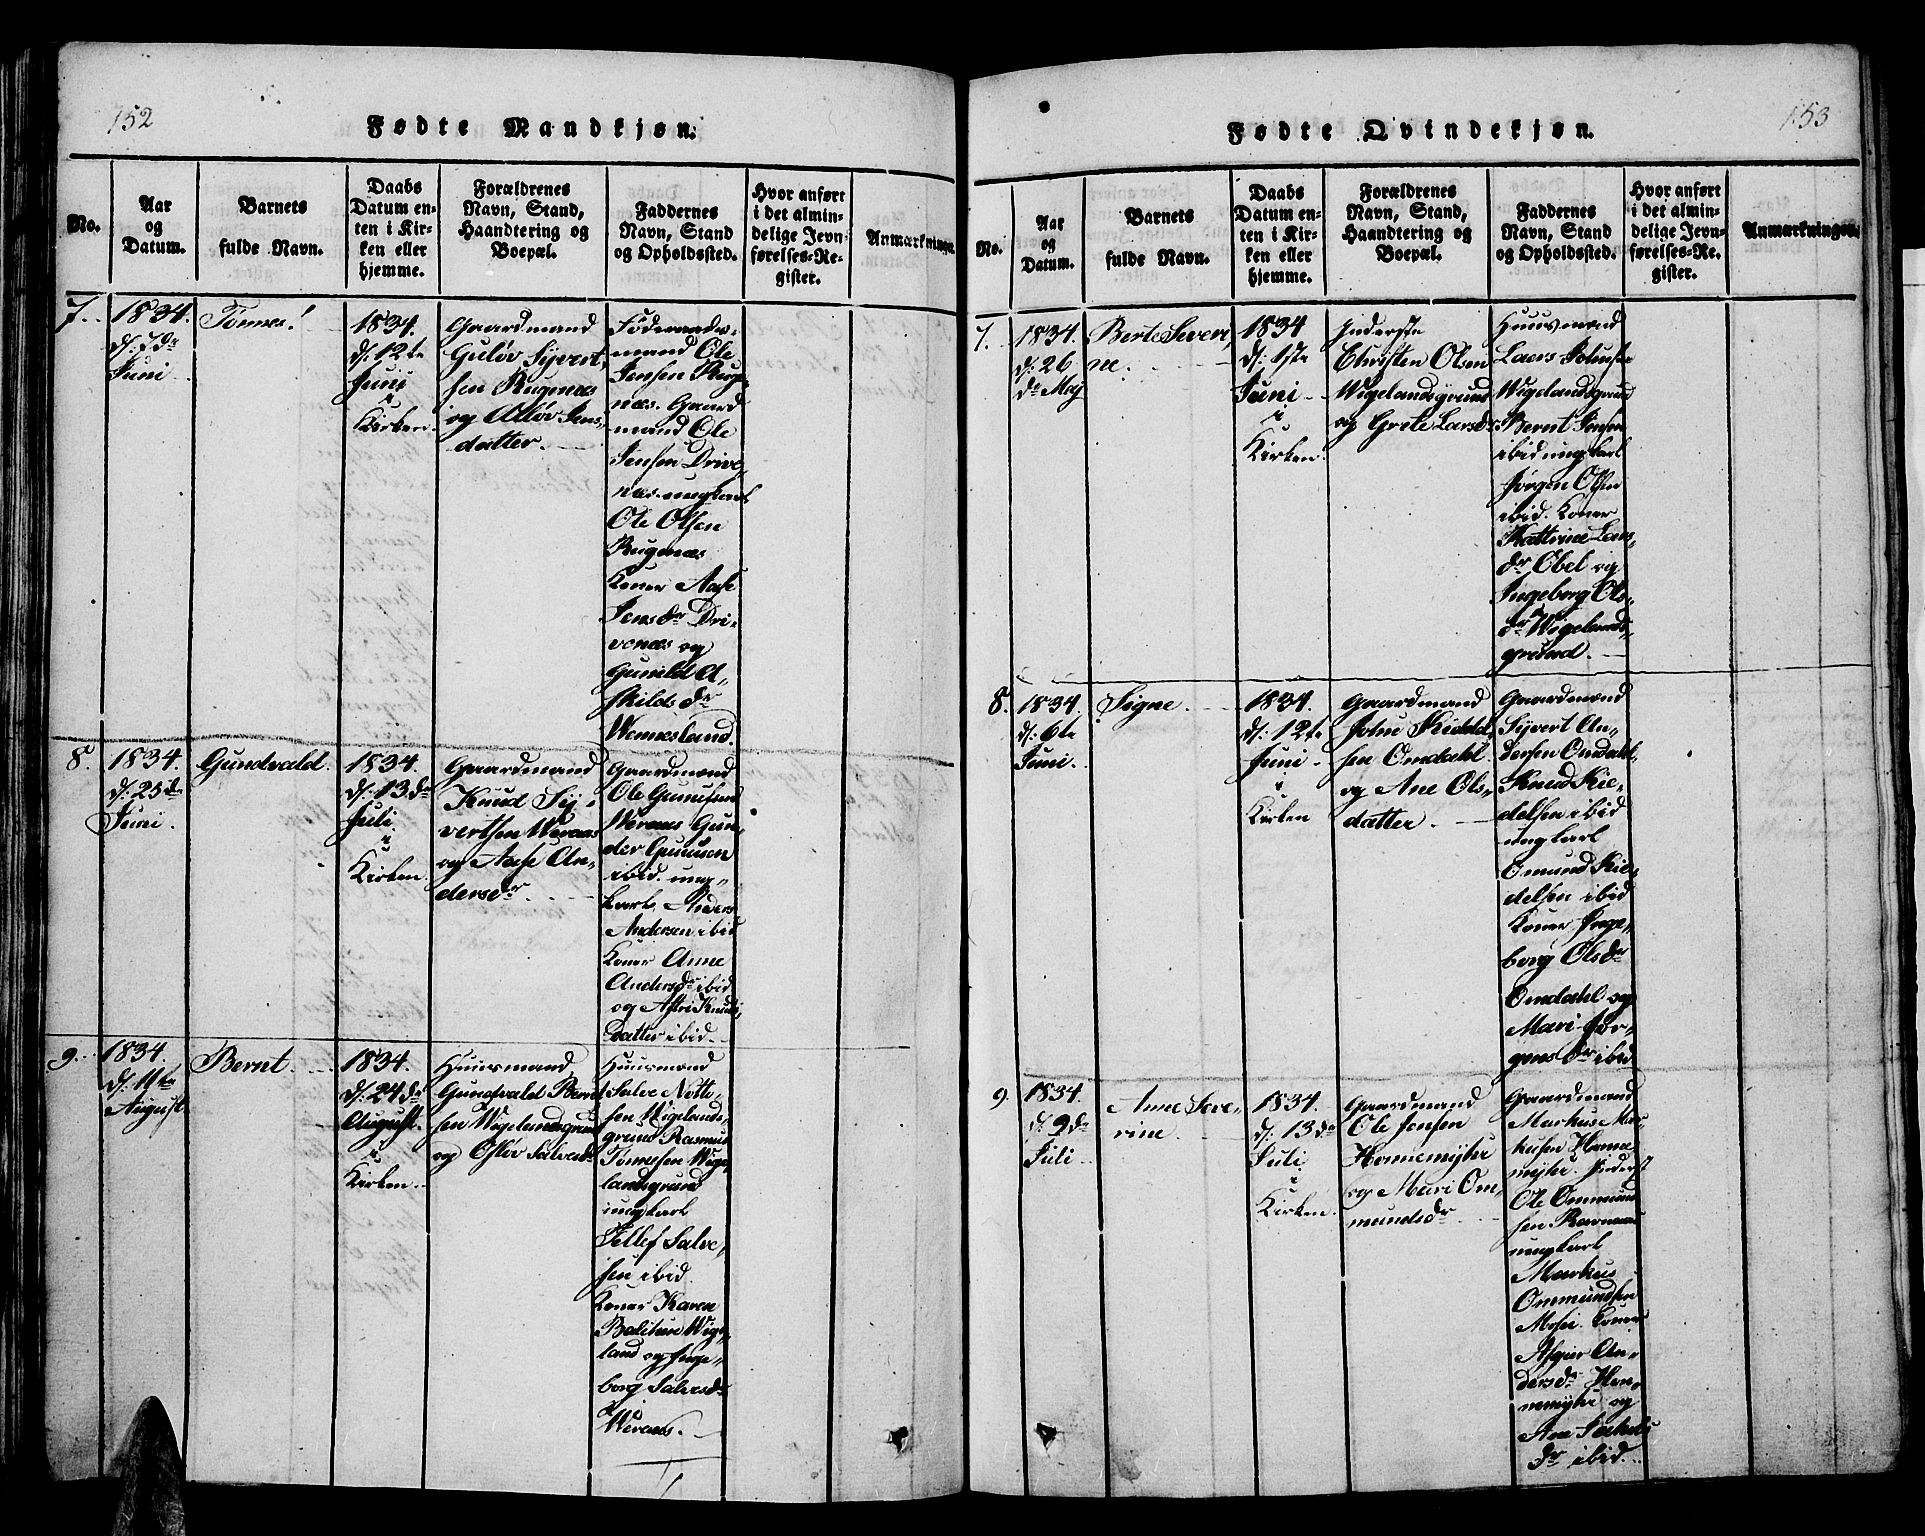 152
Fødte Mandkjøn.
No.
Aar
og
Datum.
Barnets
fulde Navn.
Daabs
Datum en-
ten i Kir-
ken eller
hjemme.
Forældrenes
Navn, Stand,
Haandtering og
Boepæl.
Faddernes
Navn, Stand
og Opholdssted.
Hvor anført
i det almin-
delige Jevn-
førelses-Re-
gister.
Anmærkninger.
7.
1834.
Juni
Tønnes.
1834.
d: 12te
Juni
i
Kirken.
Gaardmand
Guløv Syvert-
sen Rugenes
og Adlov Jens-
datter.
Føderaads-
mand Ole
Jensen Rug-
næs. Gaard
mand Ole
Jensen Drive-
næs. ungkarl
Ole Olsen
Rugenæs
Koner Aase
Jensdr Dri-
venæs og
Gunild A-
skilds dr
Wennesland.
8.
1834.
d: 25de
Juni.
Gundvald.
1834.
d: 13de
Juli.
i
Kirken.
Gaardmand
Knud Sy-
vertsen Weraas
og Aase An-
dersdr.
Gaardmænd
Ole Gunusen
Weraas Gun-
der Gunusen
ibid. ung-
karl. Anders
Andersen ibid
Koner Anne
Andersdr ibid
og Astri Knuds-
datter ibid.
9.
1834.
d: 11te
August.
Bernt.
1834.
d: 24de
August.
i
Kirken.
Huusmand
Gundvald Bernt
sen Wigelandsgrund
og Osløv Salvesdr
Huusmænd
Salve Notto-
sen Wigelands-
grund Rasmus
Tønnesen Wige-
landsgrund
ungkarl
Tellef Salve-
sen ibid.
Koner Karen
Wige-
land og Inge-
borg Salvesdr
Weraas.
153
Fødte Qvindekjøn.
No.
Aar
og
Datum.
Barnets
fulde Navn.
Daabs
Datum en-
ten i Kir-
ken eller
hjemme.
Forældrenes
Navn, Stand,
Haandtering og
Boepæl.
Faddernes
Navn, Stand
og Opholdssted.
Hvor anført
i det almin-
delige Jevn-
førelses-Re-
gister.
Anmærkninger.
7.
1834.
d: 26
de Maj
Berte Severi-
ne.
1834
d: 1ste
Juni
i
Kirken.
Inderste
Christen Olsen
Wigelandsgrund
og Grete Larsdr
Huusmænd
Laers
Wigelandsgrund
Bernt Jensen
ibid ungkarl
Jørgen Olsen
ibid. Koner
Kattrine Lars-
dr Obel og
Ingeborg Ols-
dr Wigelands-
grund.
8.
1834.
d: 6te
Juni.
Signe.
1834.
d: 12te
Juni
i
Kirken
Gaardmand
John Kidels-
sen Omdahl
og Ane Ols-
datter.
Gaardmænd
Syvert An-
dersen Omdahl,
Knud Kie-
delsen ibid
ungkarl
Omund Kie-
delsen ibid
Koner Inge-
borg Olsdr
Omdahl og
Mari Jør-
gens dr ibid
9.
1834.
d: 9de
Juli.
Anne Seve-
rine.
1834.
d: 13de
Juli
i
Kirken.
Gaardmand
Ole Jensen
Honnemyhr
og Mari Om-
mundsdr
Gaardmand
Markus Mar-
kusen Honne-
myhr. Inderst
Ole Ommund
sen Ravnaas
ungkarl
Markus
Ommundsen
Mosei Koner
Asgier An-
dersdr Hon-
nemyhr og
Ane
dr ibid.